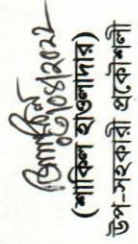 ০৪/০৪/২০২২
(শাকিল হাওলাদার)
উপ-সহকারী প্রকৌশলী